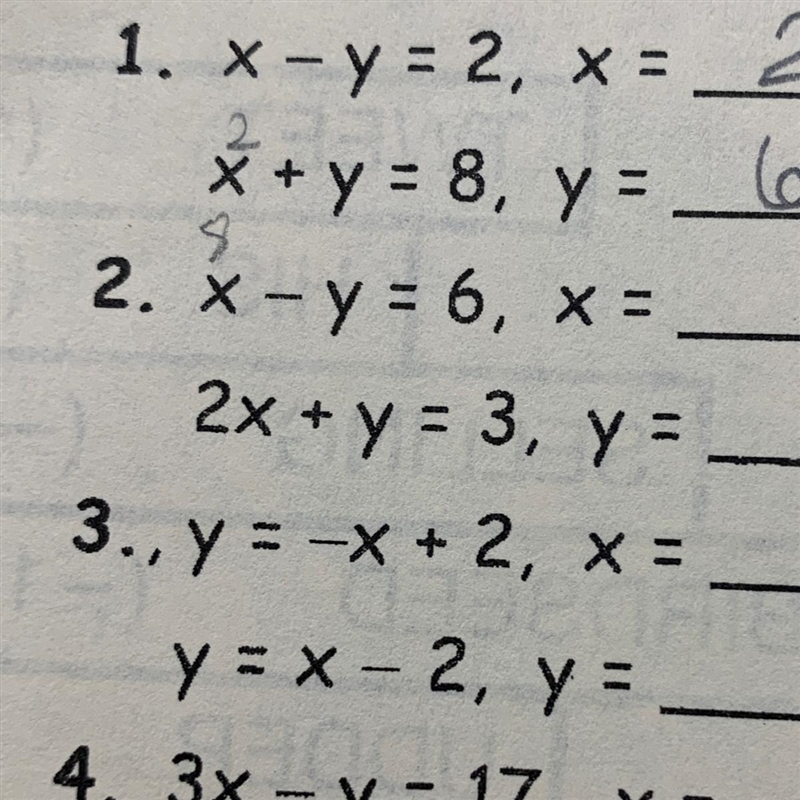 1. x - y = 2, x = 2
2
x + y = 8, y = 6
8
2. x - y = 6, x =
2x + y = 3, y =
3., y = -x + 2, x =
y = x - 2, y =
4. 3x - y = 17, x =